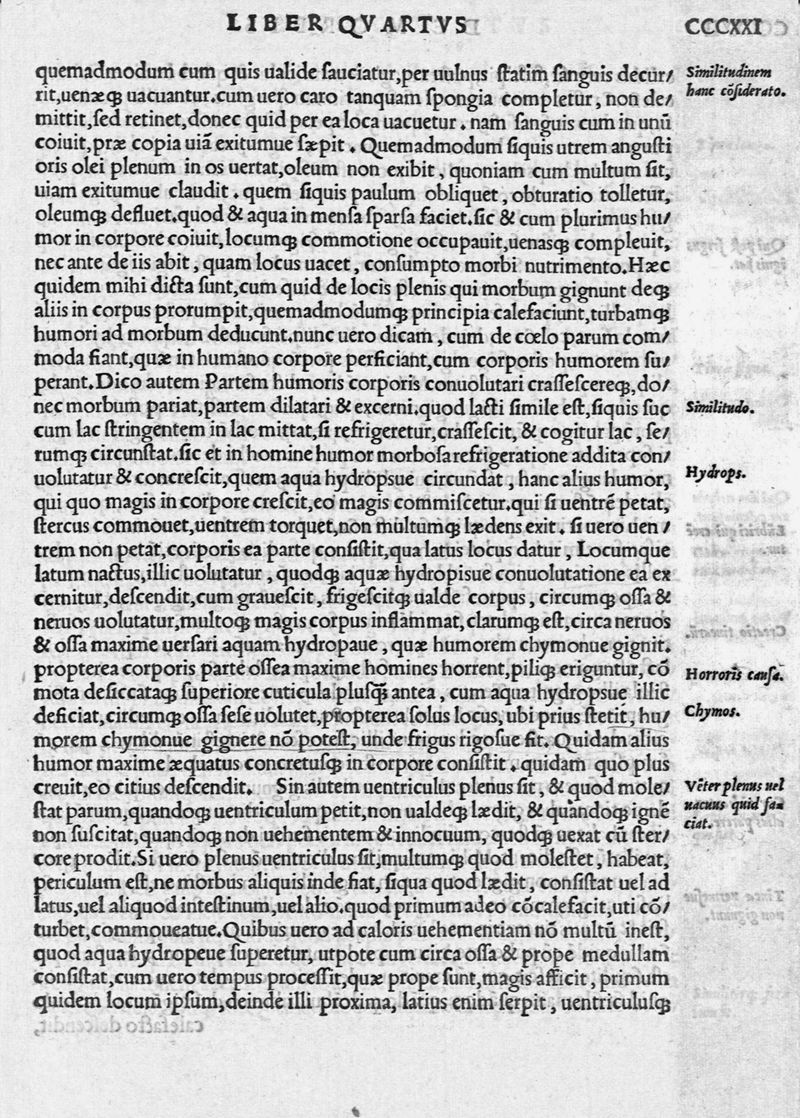 LIBER QVARTVS CCCXXI
quemadmodum cum quis ualide ſauciatur,per uulnus ſtatim ſanguis decur/
rit,uenæq́; uacuantur.cum uero caro tanquam ſpongia completur, non de/
mittit,ſed retinet,donec quid per ea loca uacuetur. nam ſanguis cum in unũ
coiuit,præ copia uiã exitumue ſæpit. Quemadmodum ſiquis utrem anguſti
oris olei plenum in os uertat,oleum non exibit, quoniam cum multum ſit,
uiam exitumue claudit. quem ſiquis paulum obliquet, obturatio tolletur,
oleumq́; defluet.quod & aqua in menſa ſparſa faciet.ſic & cum plurimus hu/
mor in corpore coiuit,locumq́; commotione occupauit,uenasq́; compleuit,
nec ante de iis abit, quam locus uacet, conſumpto morbi nutrimento.Hæc
quidem mihi dicta ſunt,cum quid de locis plenis qui morbum gignunt deq́;
aliis in corpus prorumpit,quemadmodumq́; principia calefaciunt,turbamq́;
humori ad morbum deducunt.nunc uero dicam, cum de cœlo parum com/
moda fiant,quæ in humano corpore perficiant,cum corporis humorem ſu/
perant.Dico autem Partem humoris corporis conuolutari craſſeſcereq́;,do/
nec morbum pariat,partem dilatari & excerni.quod lacti ſimile eſt,ſiquis ſuc
cum lac ſtringentem in lac mittat,ſi refrigeretur,craſſeſcit, & cogitur lac, ſe/
rumq́; circunſtat.ſic et in homine humor morboſa refrigeratione addita con/
uolutatur & concreſcit,quem aqua hydropsue circundat, hanc alius humor,
qui quo magis in corpore creſcit,eo magis commiſcetur.qui ſi uentrẽ petat,
ſtercus commouet,uentrem torquet,non multumq́; lædens exit. ſi uero uen/
trem non petat,corporis ea parte conſiſtit,qua latus locus datur, Locumque
latum nactus,illic uolutatur, quodq́; aquæ hydropisue conuolutatione ea ex
cernitur,deſcendit,cum graueſcit, frigeſcitq́; ualde corpus, circumq́; oſſa &
neruos uolutatur,multoq́; magis corpus inflammat,clarumq́; eſt,circa neruos
& oſſa maxime uerſari aquam hydropaue, quæ humorem chymonue gignit.
propterea corporis parte oſſea maxime homines horrent,piliq́; eriguntur, cõ
mota deſiccataq́; ſuperiore cuticula pluſq́; antea, cum aqua hydropsue illic
deficiat,circumq́; oſſa ſeſe uolutet,propterea ſolus locus, ubi prius ſtetit, hu/
morem chymonue gignere nõ poteſt, unde frigus rigoſue fit. Quidam alius
humor maxime æquatus concretuſq́; in corpore conſiſtit. quidam quo plus
creuit,eo citius deſcendit. Sin autem uentriculus plenus ſit, & quod mole/
ſtat parum,quandoq́; uentriculum petit,non ualdeq́; lædit, & quandoq́; ignẽ
non ſuſcitat,quandoq́; non uehementem & innocuum, quodq́; uexat cũ ſter/
core prodit.Si uero plenus uentriculus ſit,multumq́; quod moleſtet, habeat,
periculum eſt,ne morbus aliquis inde fiat, ſiqua quod lædit, conſiſtat uel ad
latus,uel aliquod inteſtinum,uel alio.quod primum adeo cõcalefacit,uti cõ/
turbet,commoueatue.Quibus uero ad caloris uehementiam nõ multũ ineſt,
quod aqua hydropeue ſuperetur, utpote cum circa oſſa & prope medullam
conſiſtat,cum uero tempus proceſſit,quæ prope ſunt,magis afficit, primum
quidem locum ipſum,deinde illi proxima, latius enim ſerpit, uentriculuſq́;
Similitudinem
hanc cõſiderato.
Similitudo.
Hydrops.
Horroris cauſa.
Chymos.
Vẽter plenus uel
uacuus quid fa⸗
ciat.